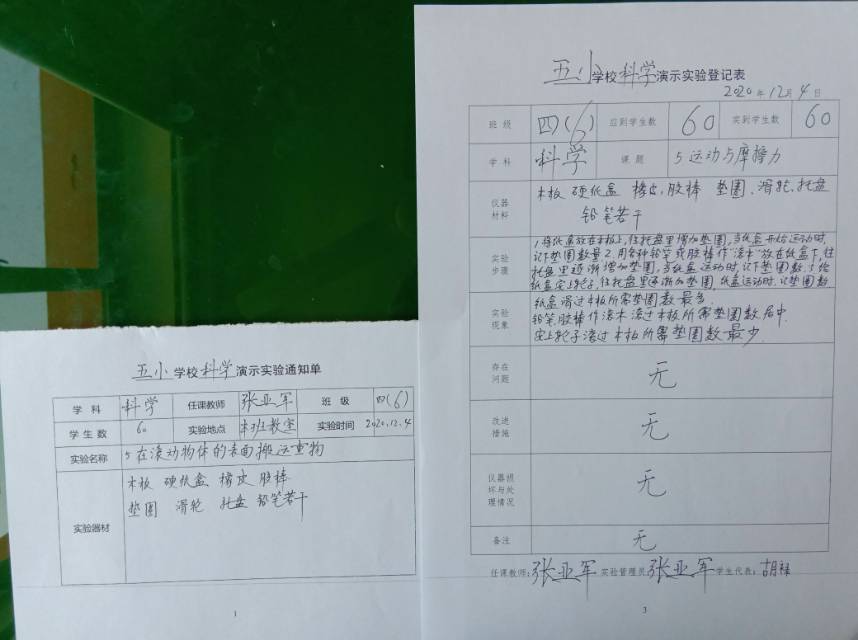 五小学校科学演示实验通知单
学科 科学 任课教师 张亚军 班级 四(6)
学生数 60 实验地点 本班教室 实验时间 2020.12.4
实验名称 5在滚动物体的表面搬运重物
实验器材 木板 硬纸盒 橡皮 胶棒
垫圈 滑轮 托盘 铅笔若干
1
五小学校科学演示实验登记表
2020年12月4日
班级 四(6) 应到学生数 60 实到学生数 60
学科 科学 课题 5运动与摩擦力
仪器材料 木板 硬纸盒 橡皮、胶棒 垫圈、滑轮、托盘
铅笔若干
实验步骤 1.将纸盒放在木板上,往托盘里增加垫圈,当纸盒开始运动时,
记下垫圈数量2.用各种铅笔或胶棒作“滚木”放在纸盒下,往
托盘里逐渐增加垫圈,当纸盒运动时,记下垫圈数.3给
纸盒安上轮子,往托盘里逐渐加垫圈,纸盒运动时.记垫圈数
实验现象 纸盒滑过木板所需垫圈数最多.
铅笔.胶棒作滚木滚过木板所需垫圈数居中.
安上轮子滚过木板所需垫圈数最少.
存在问题 无
改进措施 无
仪器损坏与处理情况 无
备注 无
任课教师:张亚军 实验管理员:张亚军 学生代表:胡
3